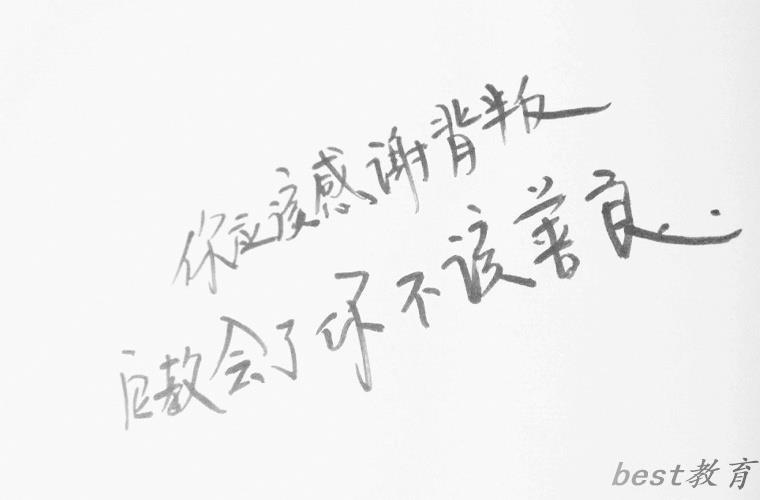 你应该感谢背叛
它教会了你不该善良.
best教育